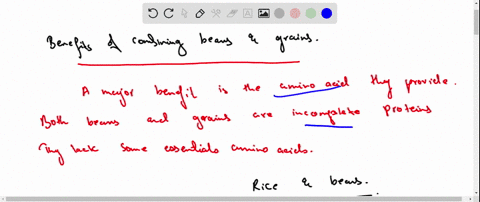 Benefits of combining beans & grains.
A major benefit is the amino acid they provide.
Both beans and grains are incomplete proteins
They lack some essentials amino acids.
Rice & beans.